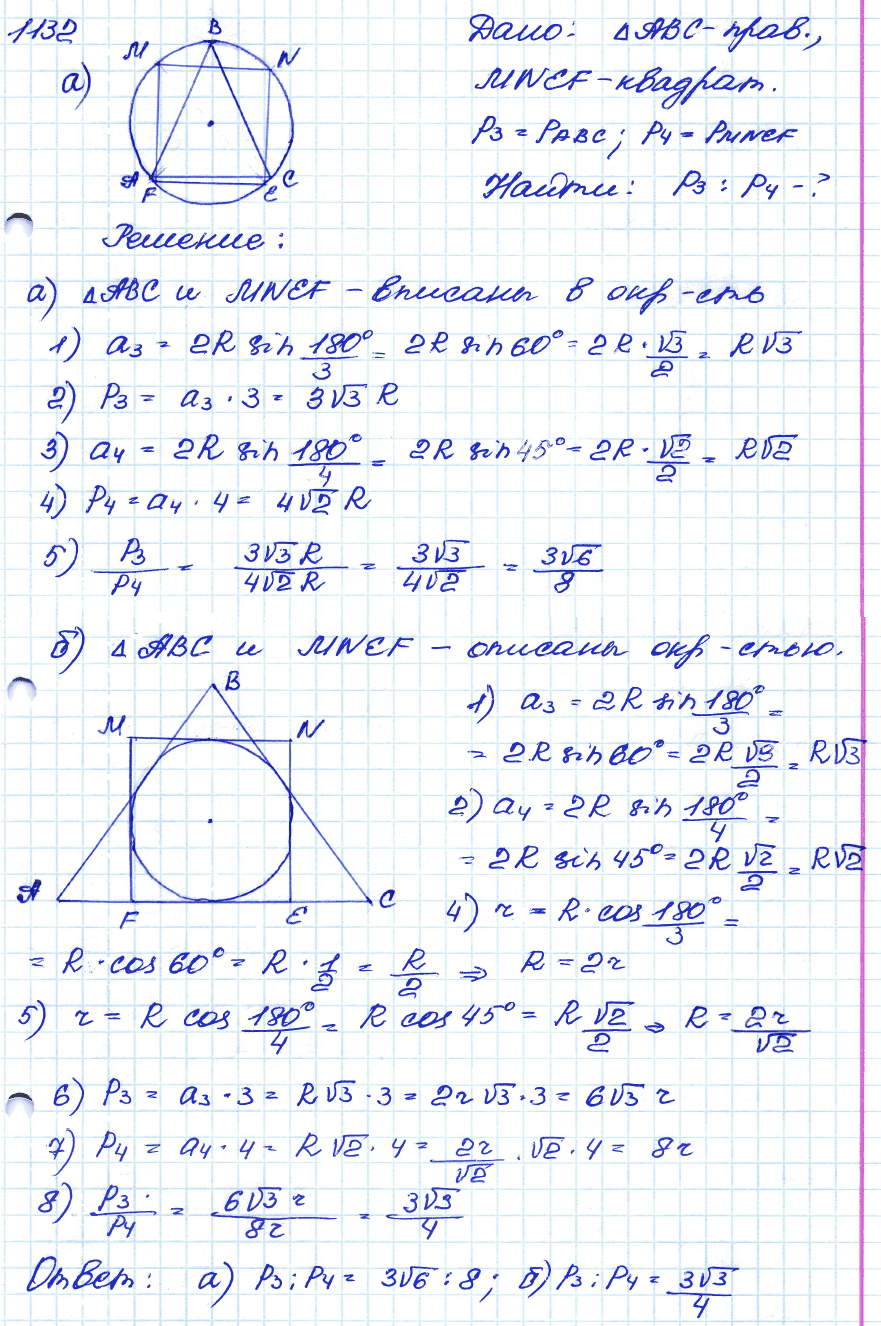 1132
а)
B
M
N
A
F
E
C
Дано: △ABC - прав.,
MNEF - квадрат.
P₃ = P_ABC; P₄ = P_MNEF
Найти: P₃ : P₄ - ?
Решение:
а) △ABC и MNEF - вписаны в окр-сть
1) a₃ = 2R sin 180°/3 = 2R sin 60° = 2R · √3/2 = R√3
2) P₃ = a₃ · 3 = 3√3 R
3) a₄ = 2R sin 180°/4 = 2R sin 45° = 2R · √2/2 = R√2
4) P₄ = a₄ · 4 = 4√2 R
5) P₃/P₄ = 3√3 R/4√2 R = 3√3/4√2 = 3√6/8
б) △ABC и MNEF - описаны окр-стью.
B
M
N
A
F
E
C
1) a₃ = 2R sin 180°/3 =
= 2R sin 60° = 2R √3/2 = R√3
2) a₄ = 2R sin 180°/4 =
= 2R sin 45° = 2R √2/2 = R√2
4) r = R · cos 180°/3 =
= R · cos 60° = R · 1/2 = R/2 ⇒ R = 2r
5) r = R cos 180°/4 = R cos 45° = R √2/2 ⇒ R = 2r/√2
6) P₃ = a₃ · 3 = R√3 · 3 = 2r √3 · 3 = 6√3 r
7) P₄ = a₄ · 4 = R√2 · 4 = 2r/√2 · √2 · 4 = 8r
8) P₃/P₄ = 6√3 r/8r = 3√3/4
Ответ: а) P₃ : P₄ = 3√6 : 8; б) P₃ : P₄ = 3√3/4